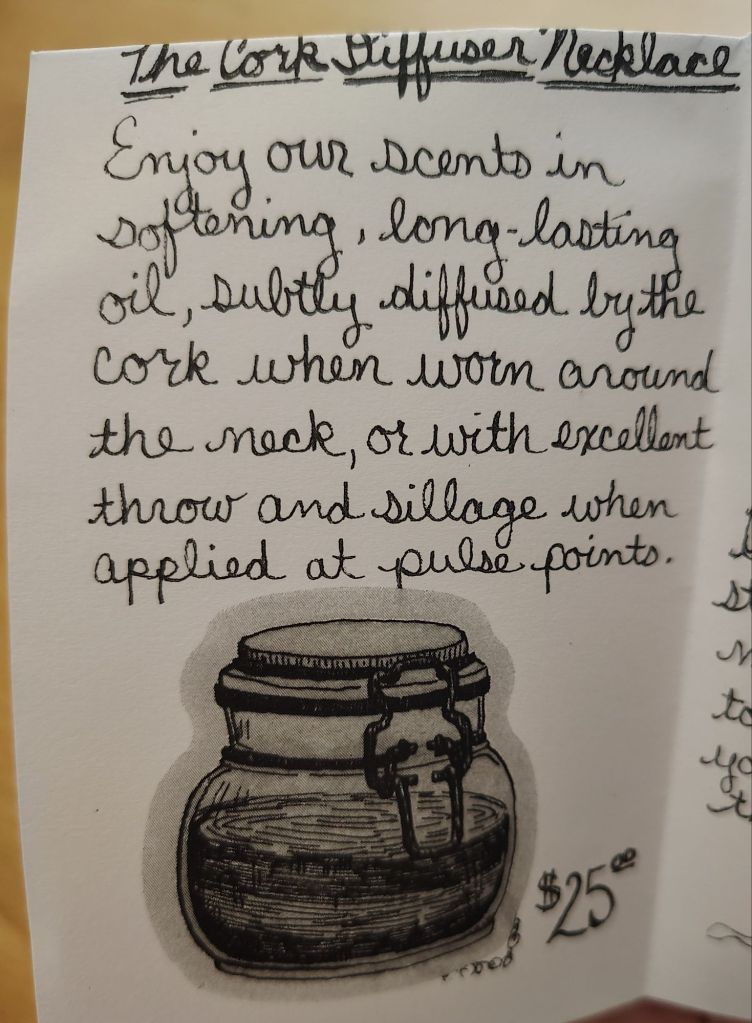 The Cork Diffuser Necklace
Enjoy our scents in
softening, long-lasting
oil, subtly diffused by the
cork when worn around
the neck, or with excellent
throw and sillage when
applied at pulse points.
$25⁰⁰
st
to
yo